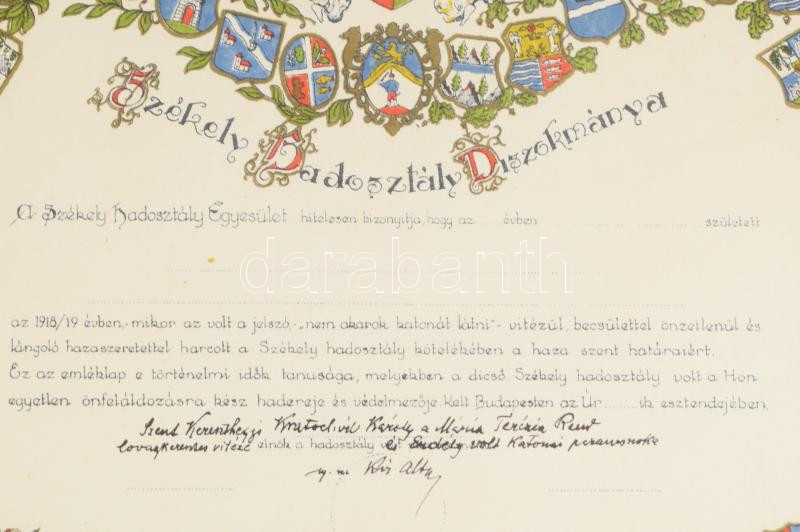 Székely Hadosztály Díszokmánya
A Székely Hadosztály Egyesület hitelesen bizonyítja, hogy az ...... évben ........................................ született
darabanth
az 1918/19 évben,-mikor az volt a jelszó,-„nem akarok katonát látni"- vitézül, becsülettel önzetlenül és
lángoló hazaszeretettel harcolt a Székely hadosztály kötelékében a haza szent határaiért.
Ez az emléklap e történelmi idők tanusága, melyekben a dicső Székely hadosztály volt a Hon
egyetlen önfeláldozásra kész hadereje és védelmezője. Kelt Budapesten az Úr ......... ik esztendejében.
Szent Kereszthegyi Kratochvil Károly a Mária Terézia Rend
lovagkeresztes vitéze elnök a hadosztály és Erdély volt Katonai parancsnoka